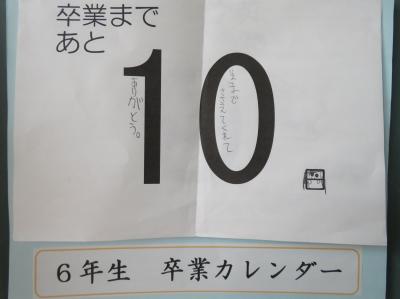 卒業まで
あと
10
今まで
ささえてくれて
ありがとう。
6年生 卒業カレンダー